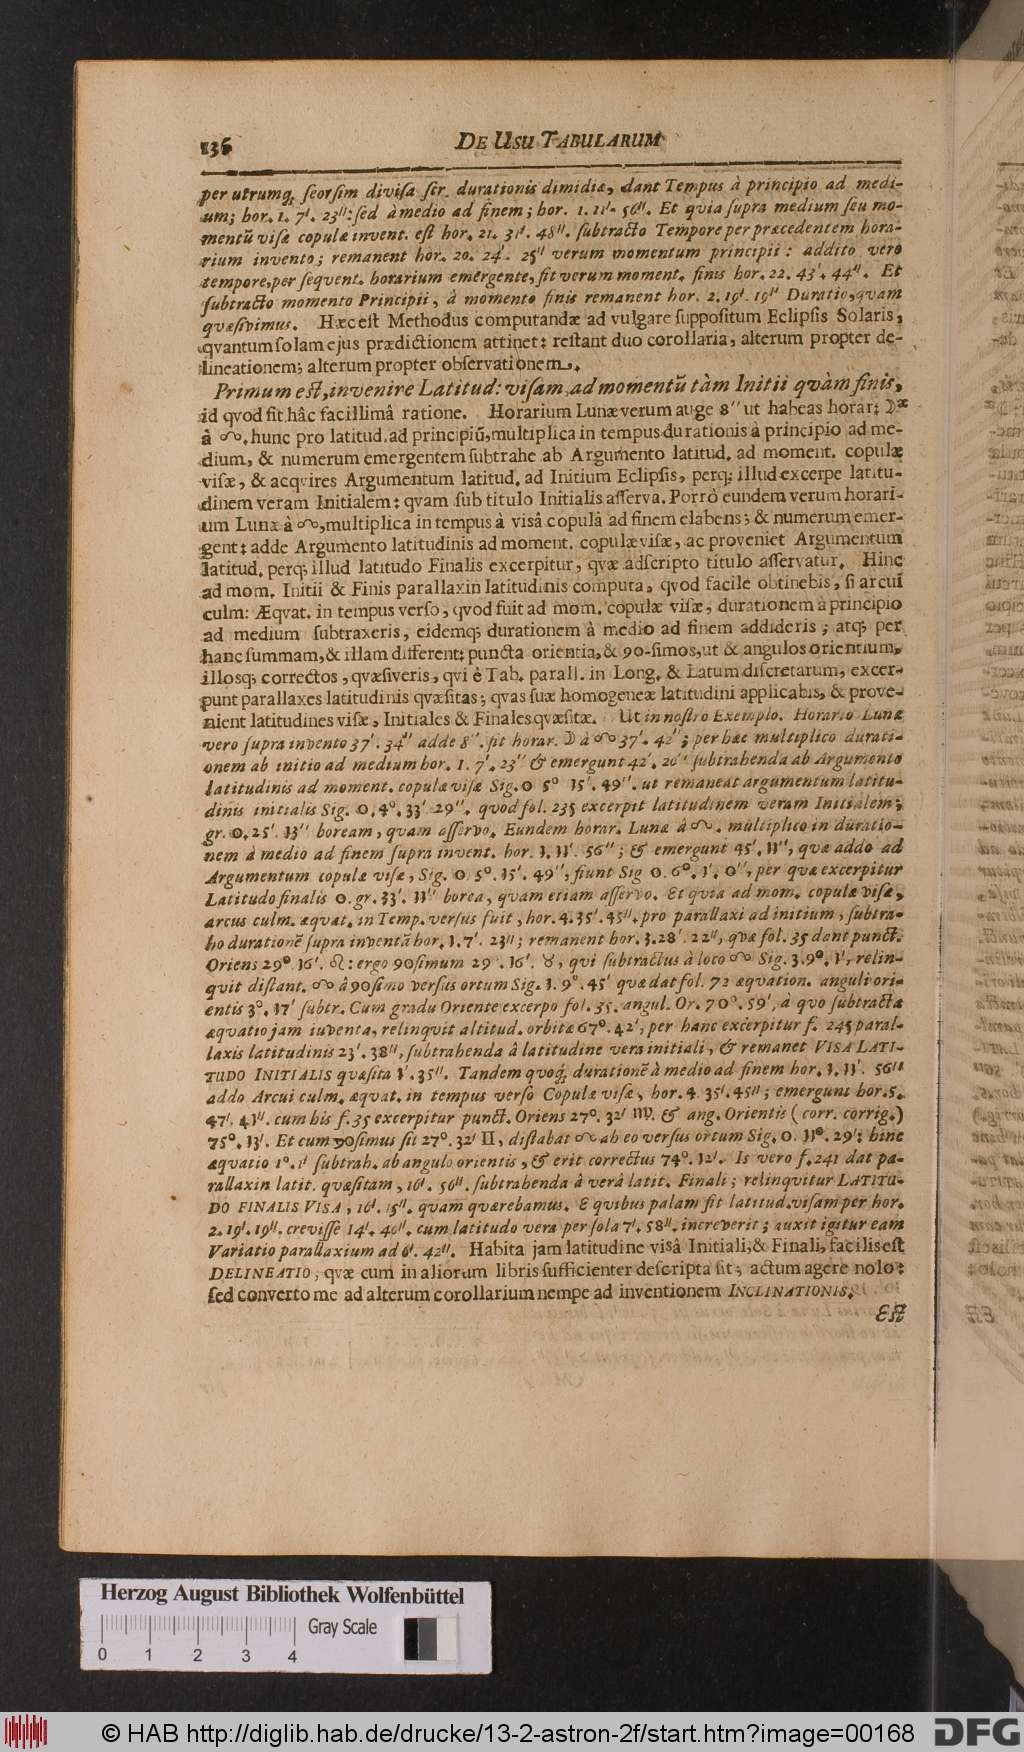 136 DE USU TABULARUM
per utrumq; seorsim divisa scr. durationis dimidiæ, dant Tempus à principio ad medi-
um; hor. 1. 7'. 23'': sed à medio ad finem; hor. 1. 11'. 56''. Et qvia supra medium seu mo-
mentũ visæ copulæ invent. est hor. 21. 31'. 48''. subtracto Tempore per præcedentem hora-
rium invento; remanent hor. 20. 24'. 25'' verum momentum principii: addito vero
tempore, per seqvent. horarium emergente, fit verum moment. finis hor. 22. 43'. 44''. Et
subtracto momento Principii, à momento finis remanent hor. 2. 19'. 19'' Duratio, qvam
qvæsivimus. Hæc est Methodus computandæ ad vulgare suppositum Eclipsis Solaris,
qvantum solam ejus prædictionem attinet: restant duo corollaria, alterum propter de-
lineationem; alterum propter observationem.
Primum est, invenire Latitud: visam, ad momentũ tàm Initii qvàm finis,
id qvod fit hâc facillimâ ratione. Horarium Lunæ verum auge 8'' ut habeas horar: ☽æ
à ☍. hunc pro latitud. ad principiũ, multiplica in tempus durationis à principio ad me-
dium, & numerum emergentem subtrahe ab Argumento latitud. ad moment. copulæ
visæ, & acqvires Argumentum latitud. ad Initium Eclipsis, perq; illud excerpe latitu-
dinem veram Initialem: qvam sub titulo Initialis asserva. Porrò eundem verum horari-
um Lunæ à ☍, multiplica in tempus à visâ copulâ ad finem elabens; & numerum emer-
gent: adde Argumento latitudinis ad moment. copulæ visæ, ac proveniet Argumentum
latitud. perq; illud latitudo Finalis excerpitur, qvæ adscripto titulo asservatur. Hinc
ad mom. Initii & Finis parallaxin latitudinis computa, qvod facile obtinebis, si arcui
culm: Æqvat. in tempus verso, qvod fuit ad mom. copulæ visæ, durationem à principio
ad medium subtraxeris, eidemq; durationem à medio ad finem addideris; atq; per
hanc summam, & illam different: puncta orientia, & 90-simos, ut & angulos orientium,
illosq; correctos, qvæsiveris, qvi è Tab. parall. in Long. & Latum discretarum, excer-
punt parallaxes latitudinis qvæsitas; qvas suæ homogeneæ latitudini applicabis, & prove-
nient latitudines visæ, Initiales & Finales qvæsitæ. Ut in nostro Exemplo. Horario Lunæ
vero supra invento 37'. 34'' adde 8''. fit horar. ☽ à ☍ 37'. 42''; per hæc multiplico durati-
onem ab initio ad medium hor. 1. 7'. 23'' & emergunt 42'. 20'' subtrahenda ab Argumento
latitudinis ad moment. copulæ visæ Sig. 0 5° 15'. 49''. ut remaneat argumentum latitu-
dinis initialis Sig. 0. 4°. 33' 29''. qvod fol. 235 excerpit latitudinem veram Initialem;
gr. 0. 25'. 13'' boream, qvam asservo. Eundem horar. Lunæ à ☍. multiplico in duratio-
nem à medio ad finem supra invent. hor. 1. 11'. 56''; & emergunt 45'. 11'', qvæ addo ad
Argumentum copulæ visæ, Sig. 0. 5°. 15'. 49'', fiunt Sig 0. 6°. 1'. 0'', per qvæ excerpitur
Latitudo finalis 0. gr. 33'. 11'' borea, qvam etiam asservo. Et qvia ad mom. copulæ visæ,
arcus culm. æqvat. in Temp. versus fuit, hor. 4. 35'. 45''. pro parallaxi ad initium, subtra-
ho durationẽ supra inventã hor. 1. 7'. 23''; remanent hor. 3. 28'. 22'', qvæ fol. 35 dant punct.
Oriens 29°. 16'. ♌: ergo 90simum 29°. 16'. ♉, qvi subtractus à loco ☍ Sig. 3. 9°. 1', relin-
qvit distant. ☍ à 90simo versus ortum Sig. 1. 9°. 45' qvæ dat fol. 72 æqvation. anguli ori-
entis 3°. 17' subtr. Cum gradu Oriente excerpo fol. 35. angul. Or. 70°. 59', à qvo subtracta
æqvatio jam inventa, relinqvit altitud. orbitæ 67°. 42', per hanc excerpitur f. 245 paral-
laxis latitudinis 23'. 38'', subtrahenda â latitudine vera initiali, & remanet VISA LATI-
TUDO INITIALIS qvæsita 1'. 35''. Tandem qvoq; durationẽ à medio ad finem hor. 1. 11'. 56''
addo Arcui culm. æqvat. in tempus verso Copulæ visæ, hor. 4. 35'. 45''; emergunt hor. 5.
47'. 41''. cum his f. 35 excerpitur punct. Oriens 27°. 32' ♍. & ang. Orientis (corr. corrig.)
75°. 13'. Et cum 90simus sit 27°. 32' ♊, distabat ☍ ab eo versus ortum Sig. 0. 11°. 29'; hinc
æqvatio 1°. 1' subtrah. ab angulo orientis, & erit correctus 74°. 12'. Is vero f. 241 dat pa-
rallaxin latit. qvæsitam, 16'. 56''. subtrahenda â verâ latit. Finali; relinqvitur LATITU-
DO FINALIS VISA, 16'. 15''. qvam qværebamus. E qvibus palam fit latitud. visam per hor.
2. 19'. 19''. crevisse 14'. 40''. cum latitudo vera per sola 7'. 58''. increverit; auxit igitur eam
Variatio parallaxium ad 6'. 42''. Habita jam latitudine visâ Initiali, & Finali, facilis est
DELINEATIO, qvæ cum in aliorum libris sufficienter descripta sit; actum agere nolo:
sed converto me ad alterum corollarium nempe ad inventionem INCLINATIONIS.
EST
Herzog August Bibliothek Wolfenbüttel
Gray Scale
0 1 2 3 4
© HAB http://diglib.hab.de/drucke/13-2-astron-2f/start.htm?image=00168 DFG